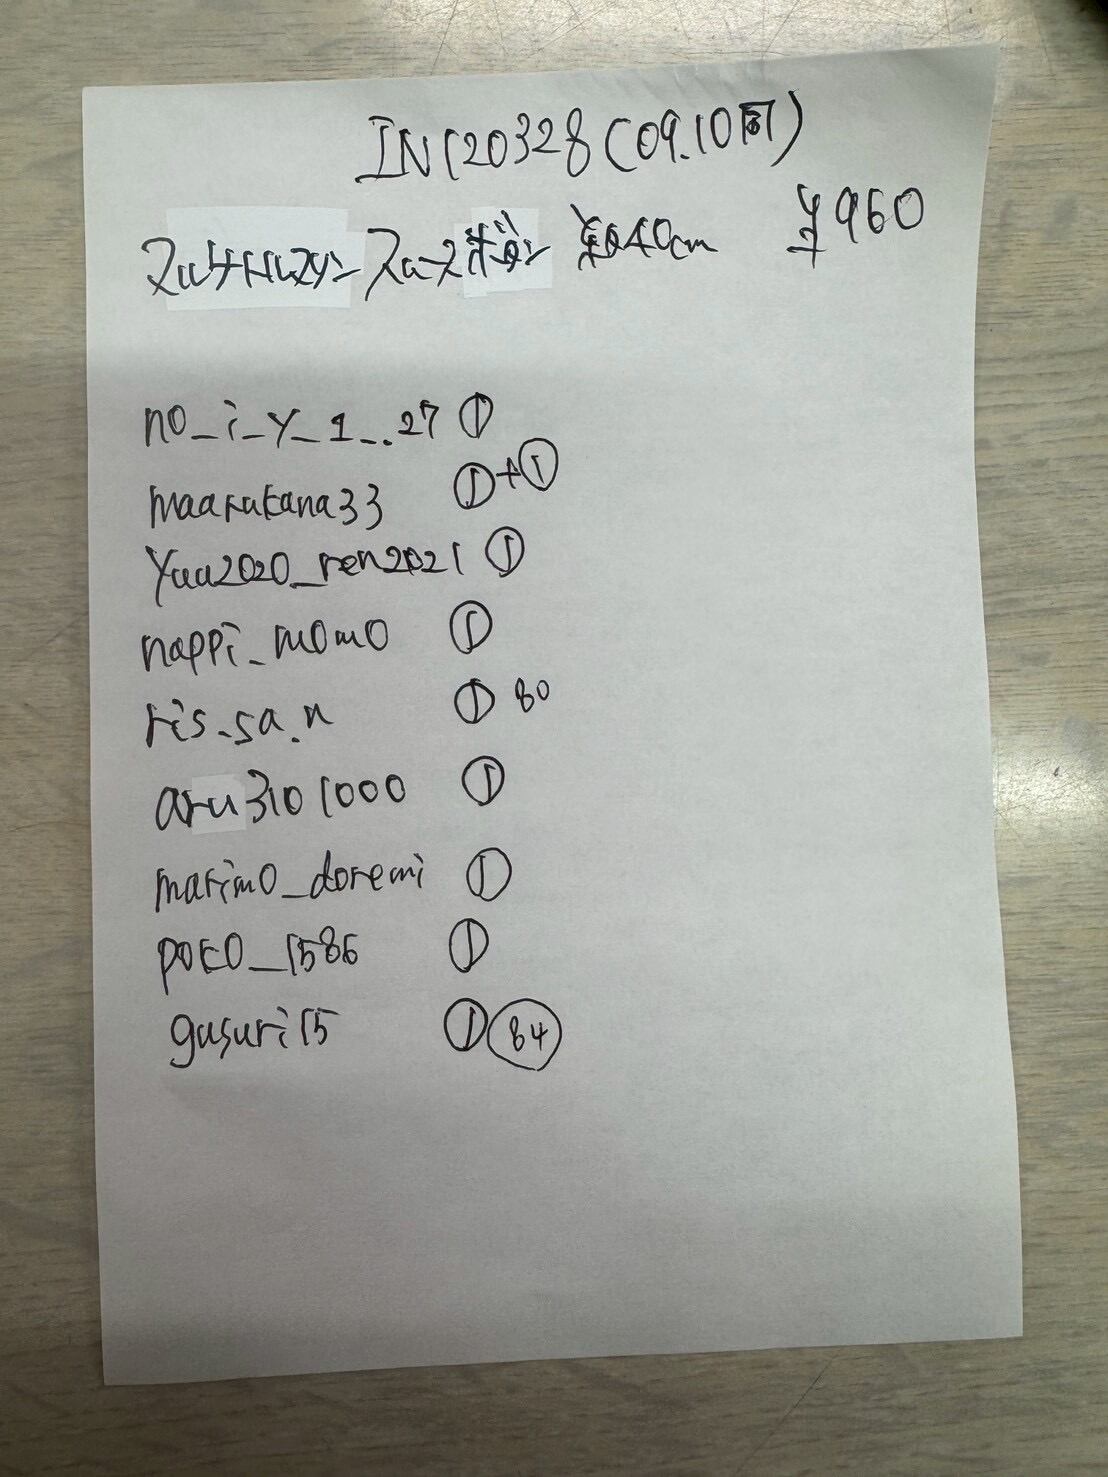 IN120328(09.10月) 
40cm ¥960
no_i_y_1_..27 ①
maarukana33 ①+①
yuu2020_ren2021 ①
nappi_momo ①
ris_sa.n ① 80
aru3101000 ①
marimo_doremi ①
poko_1586 ①
gusuri15 ① 84